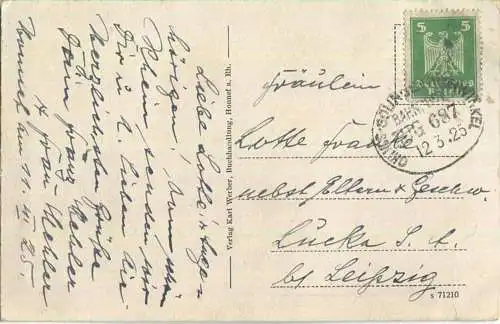 Liebe Lotte u. Ange-
hörigen! Vom schö
Rhein senden wir
Dir u. l. Lieben die
herzlichsten Grüße
Dein Franz
u. Frau
Honnef am 11. III. 25.
Verlag Karl Werber, Buchhandlung, Honnef a. Rh.
5 5
Deutsches Reich
BAHNPOST
ZUG 697
12.3.25
Fräulein
Lotte
nebst Eltern u. Geschw
Lucka S. A.
bei Leipzig
s 71210